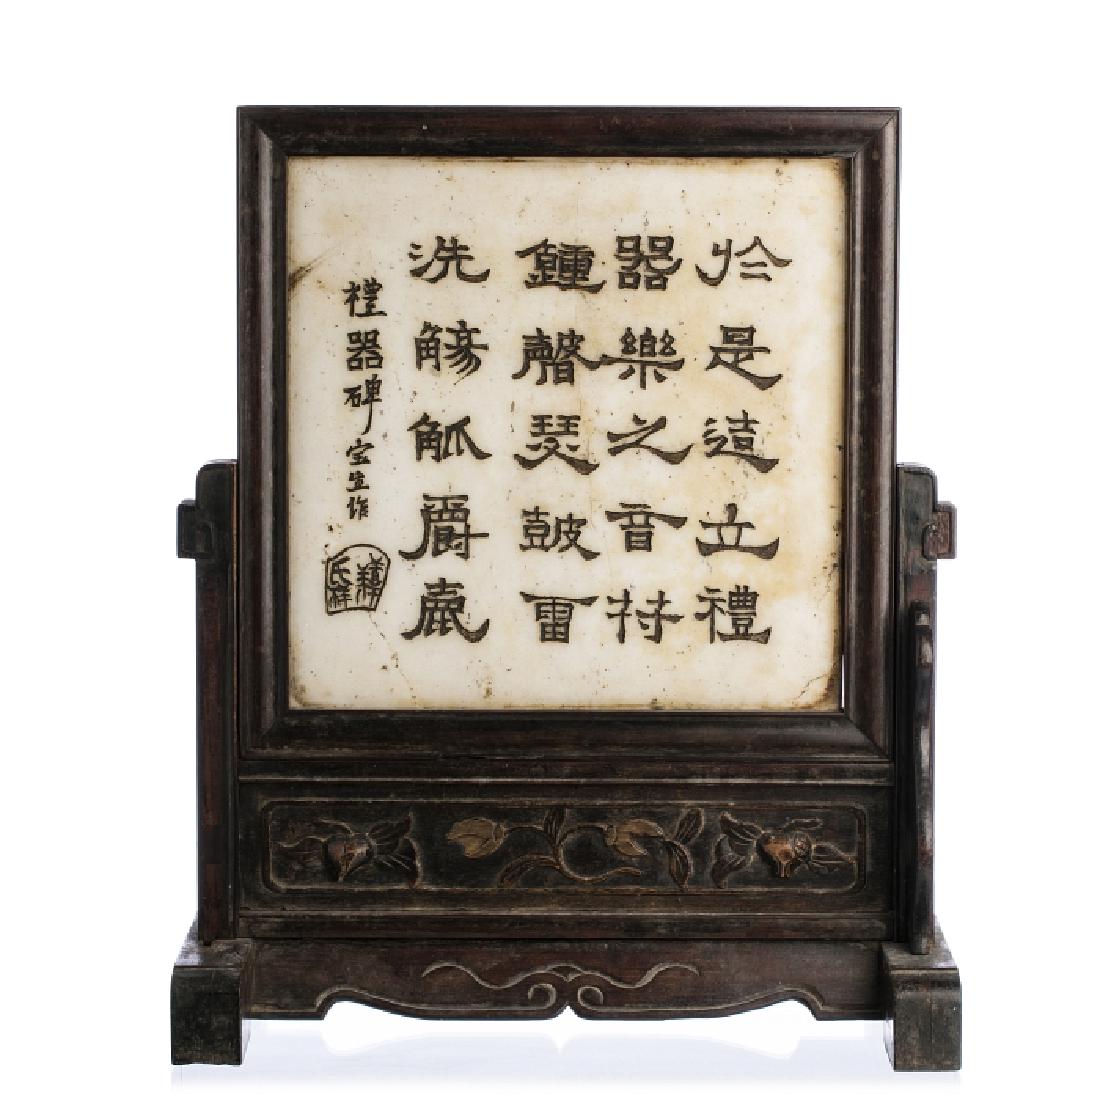 於是造立禮
器樂之音持
鍾磬瑟鼓雷
洗觴觚爵鹿
禮器碑 宝生作